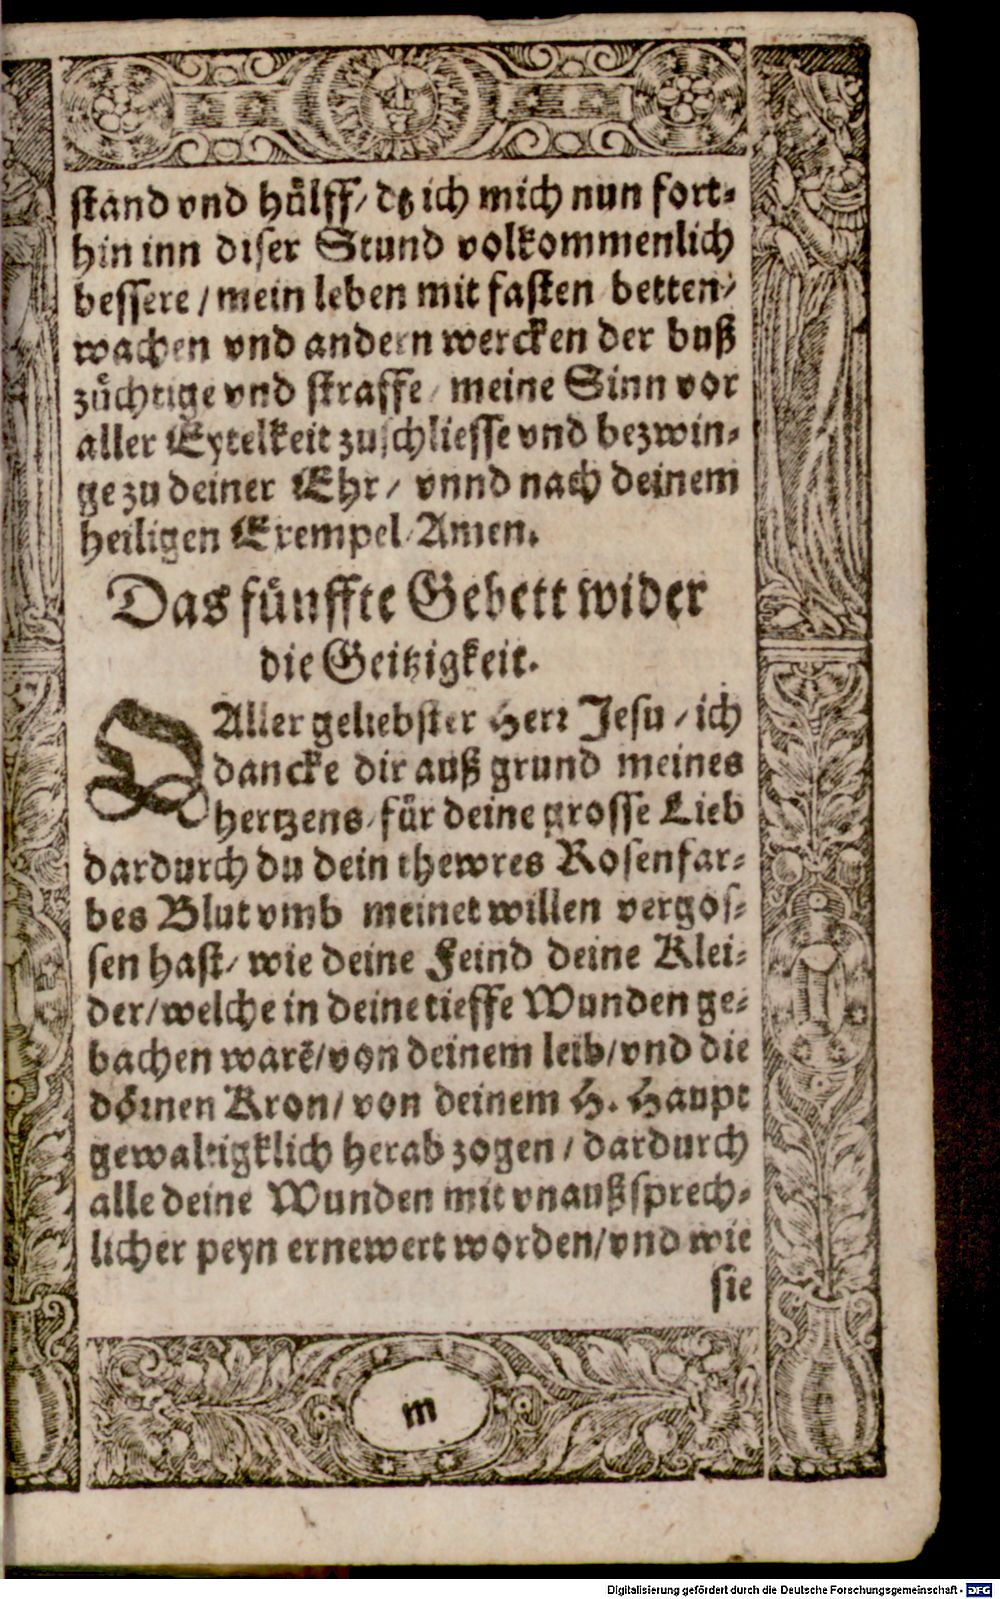 stand vnd hülff/ dz ich mich nun fort-
hin inn diser Stund volkommenlich
bessere / mein leben mit fasten betten/
wachen vnd andern wercken der buß
züchtige vnd straffe / meine Sinn vor
aller Eytelkeit zuschliesse vnd bezwin-
ge zu deiner Ehr / vnnd nach deinem
heiligen Exempel / Amen.
Das fünffte Gebett wider
die Geitzigkeit.
O Aller geliebster Herr Jesu / ich
dancke dir auß grund meines
hertzens / für deine grosse Lieb
dardurch du dein thewres Rosenfar-
bes Blut vmb meinet willen vergos-
sen hast / wie deine Feind deine Klei-
der/ welche in deine tieffe Wunden ge-
bachen warē/ von deinem leib/ vnd die
dörnen Kron/ von deinem H. Haupt
gewaltigklich herab zogen / dardurch
alle deine Wunden mit vnaußsprech-
licher peyn ernewert worden/ vnd wie
sie
m
Digitalisierung gefördert durch die Deutsche Forschungsgemeinschaft - DFG